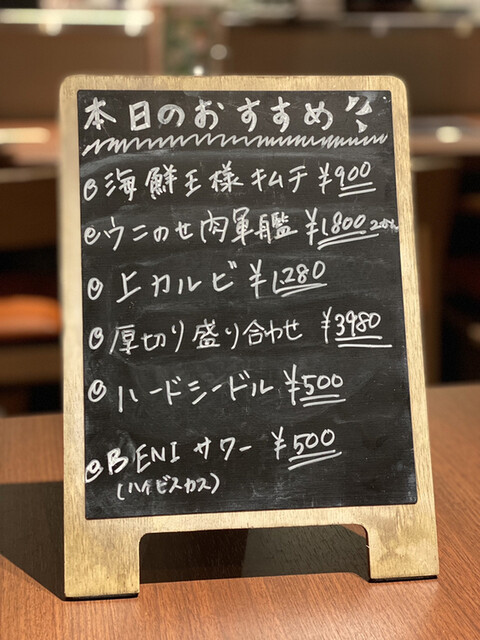 本日のおすすめ
海鮮王様キムチ ¥900
ウニのせ肉軍艦 ¥1,800 2かん
上カルビ ¥1,280
厚切り盛り合わせ ¥3980
ハードシードル ¥500
BENIサワー ¥500
(ハイビスカス)